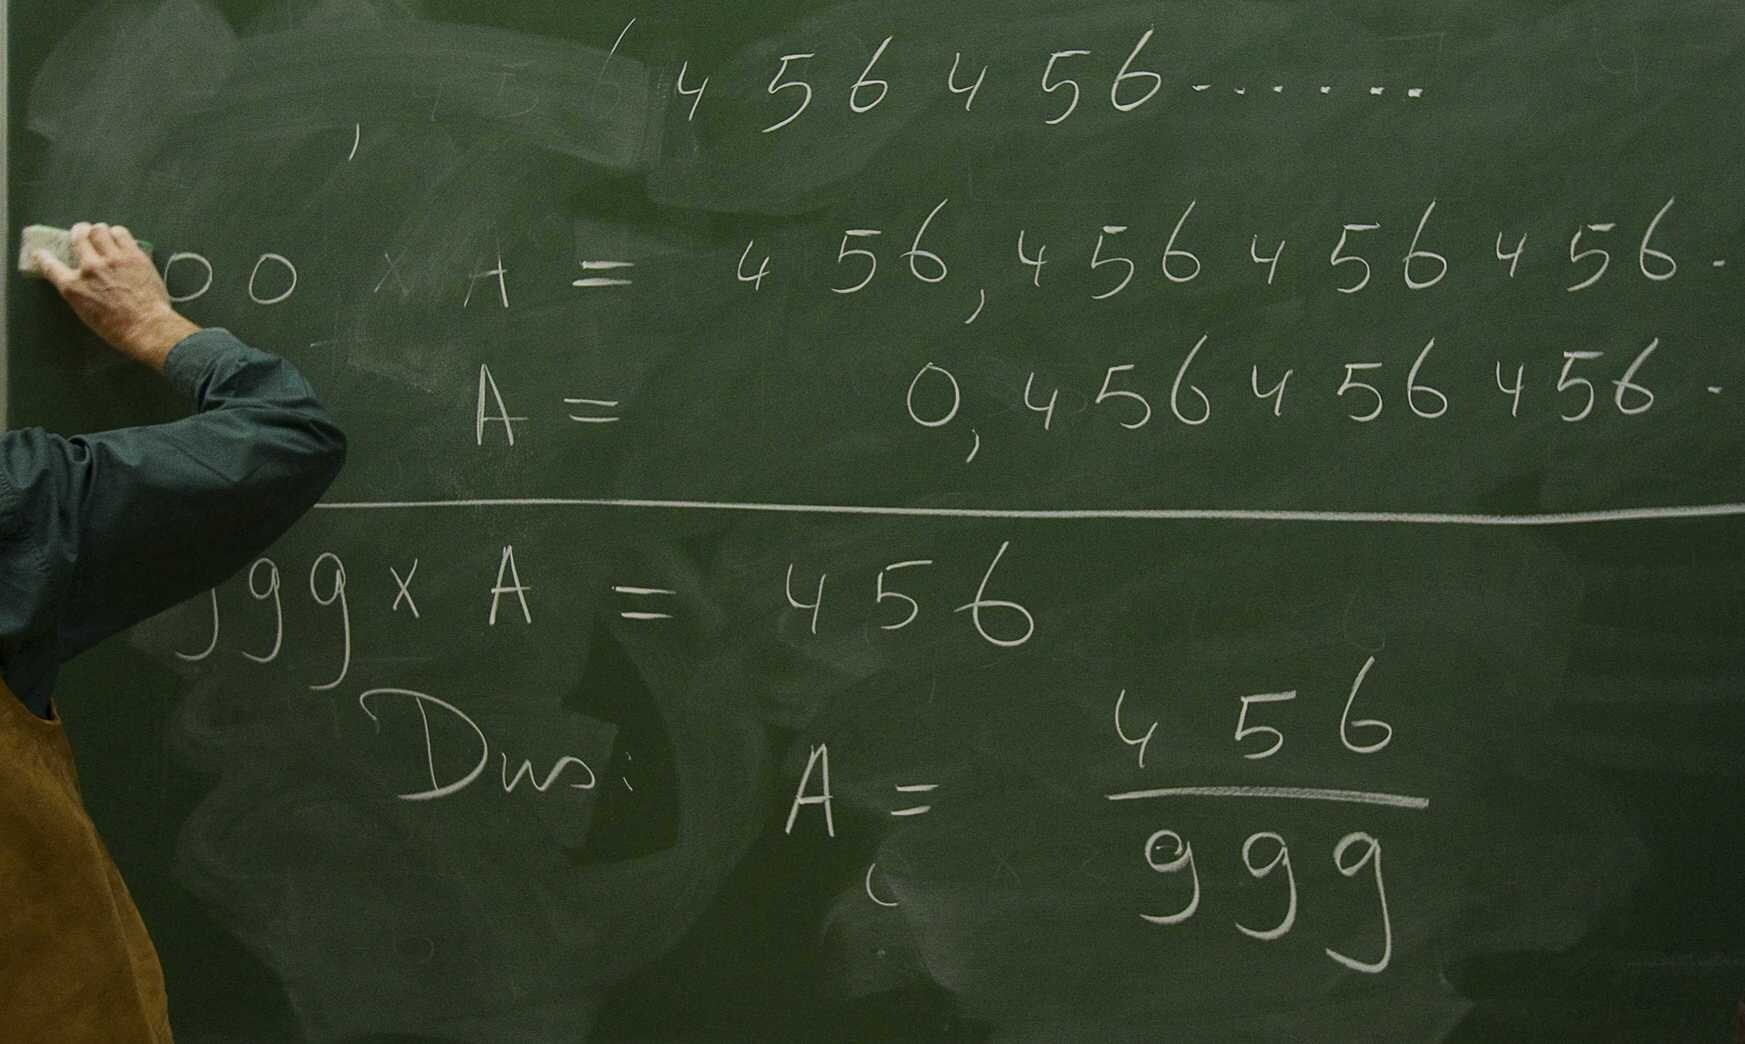 , 4 5 6 4 5 6 4 5 6 .......
00 × A = 4 5 6 , 4 5 6 4 5 6 4 5 6 .
A = 0 , 4 5 6 4 5 6 4 5 6 .
999 × A = 4 5 6
Dus: A = 4 5 6
9 9 9